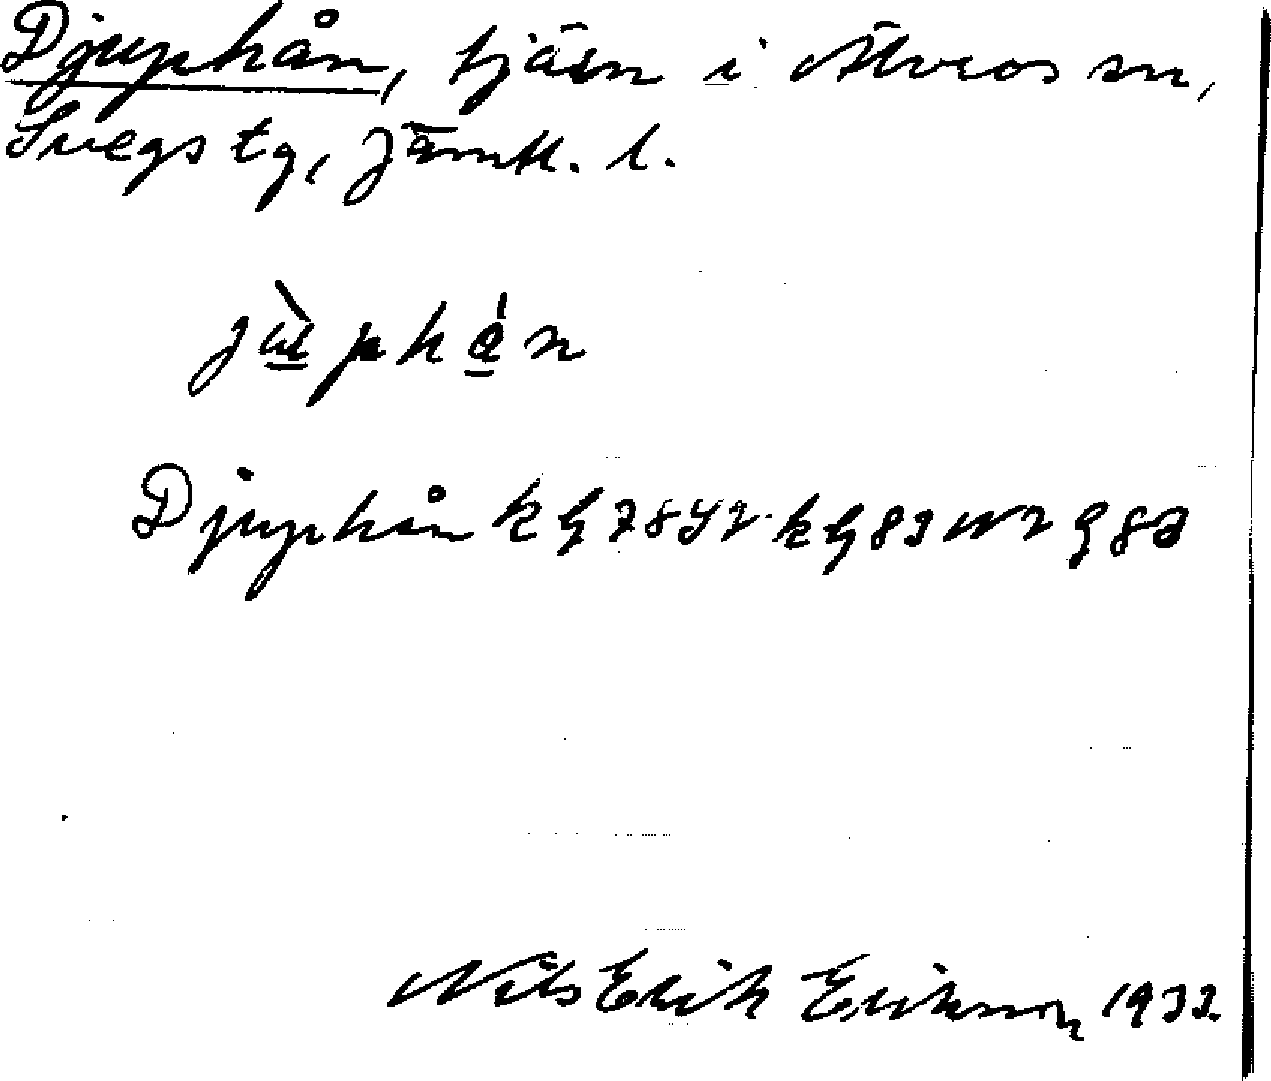 Djuphån, tjärn i Älvros sn,
Svegs tg, Jämtl. l.
jù̱phǻ̱n
Djuphån
Nils Erik Eriksson 1933.